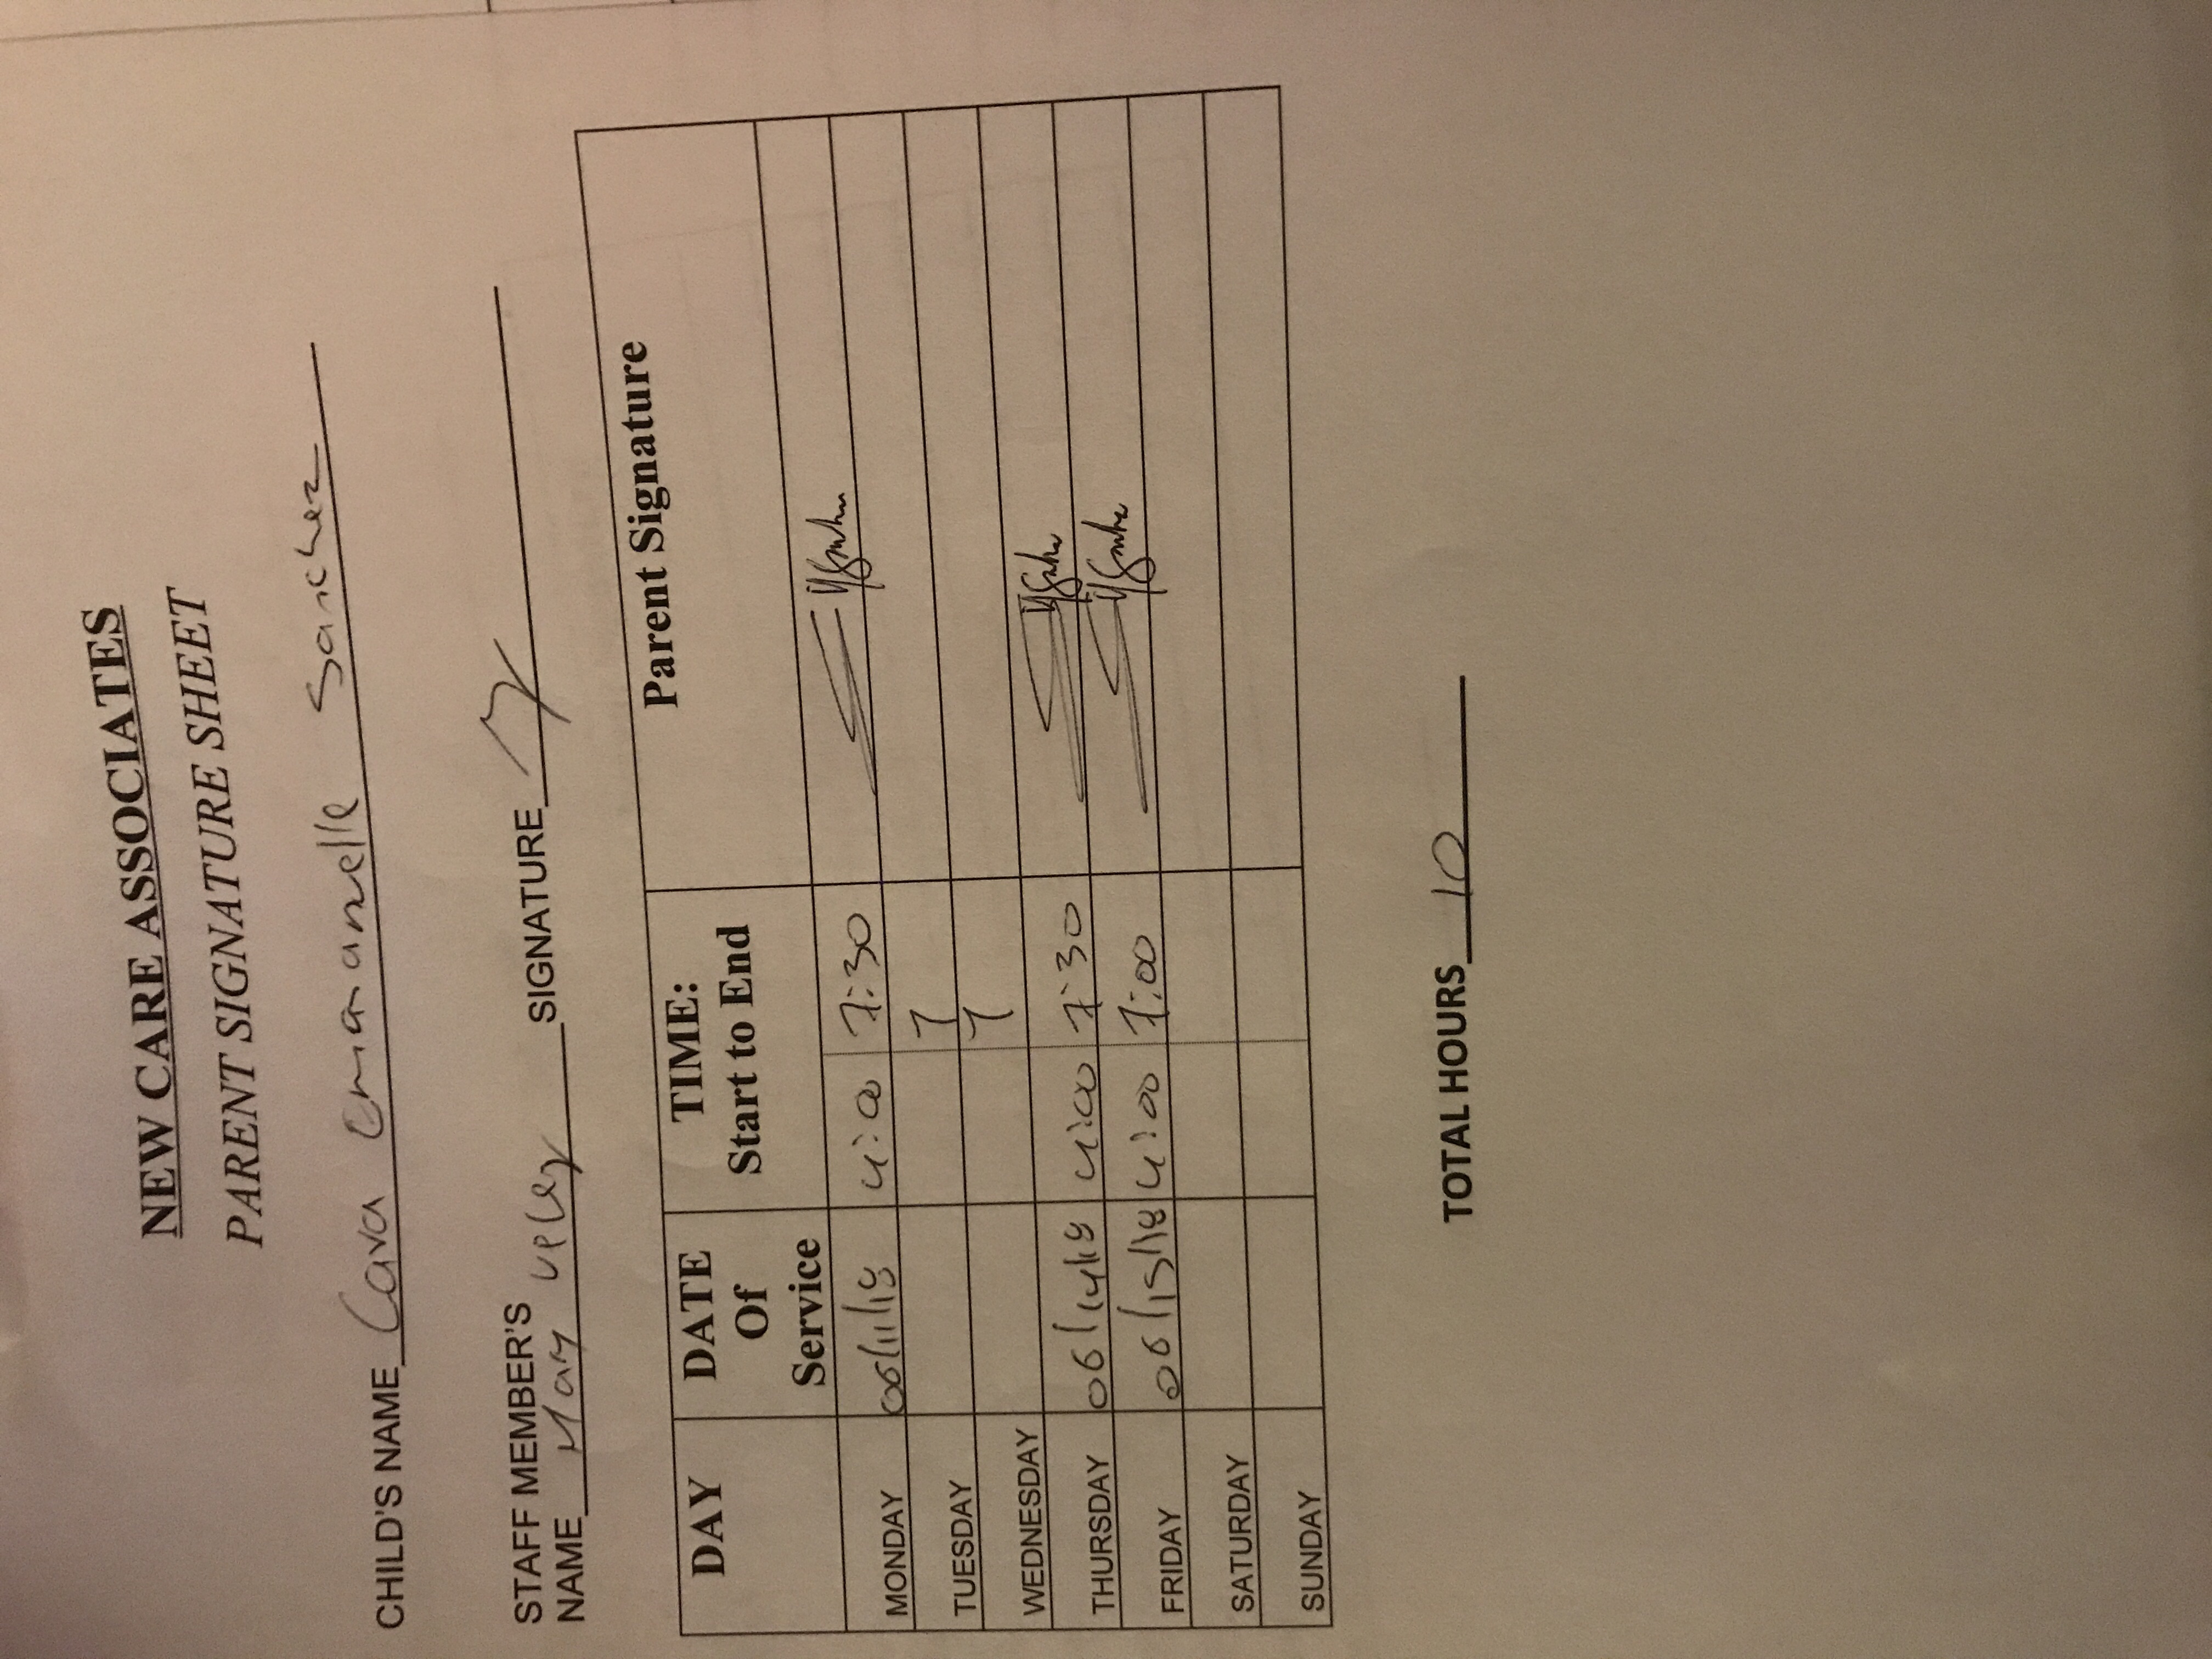 NEW CARE ASSOCIATES
PARENT SIGNATURE SHEET
CHILD'S NAME Cara Emmanuelle Sanchez
STAFF MEMBER'S
NAME May Velez SIGNATURE
DAY DATE Of Service TIME: Start to End Parent Signature
MONDAY 06/11/18 4:00 7:30
TUESDAY 7
WEDNESDAY 7
THURSDAY 06/14/18 4:00 7:30
FRIDAY 06/15/18 4:00 7:00
SATURDAY
SUNDAY
TOTAL HOURS 10